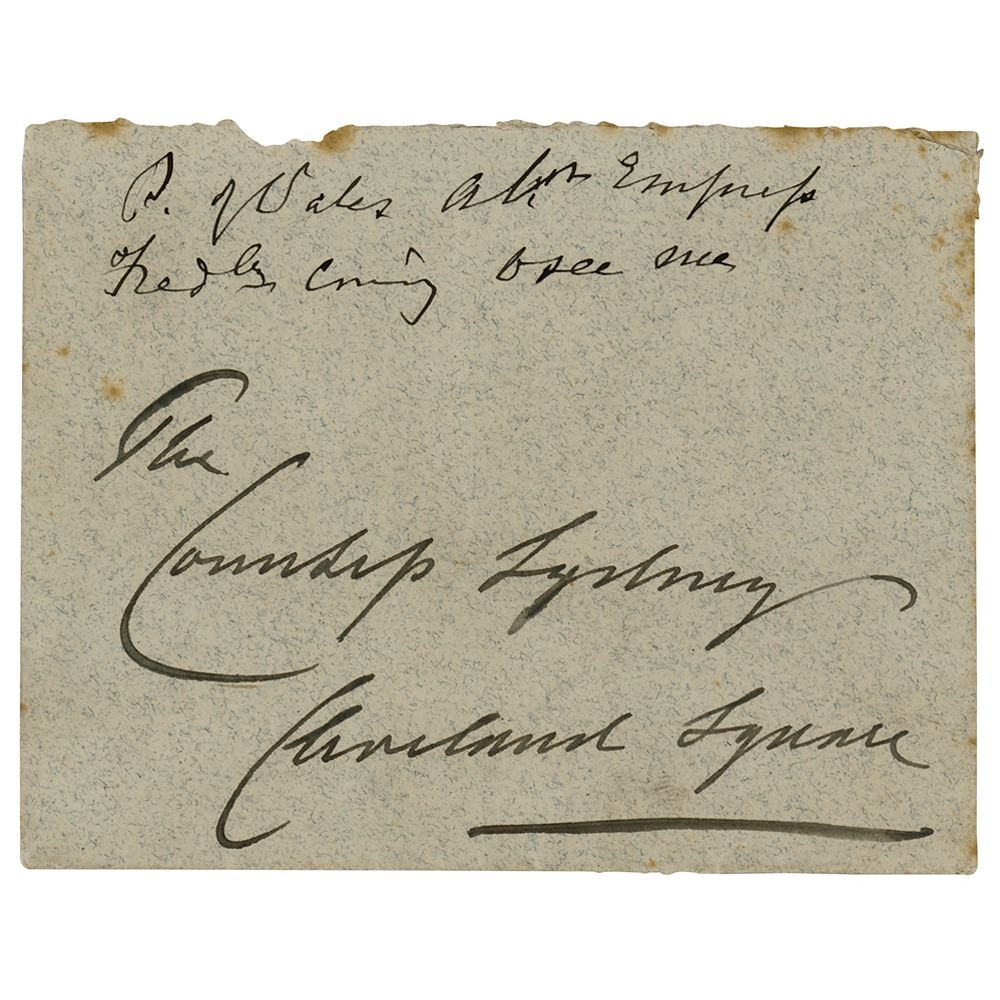 P. of Wales abt Empress
Fredk coming to see me
The
Countess Sydney
Cleveland Square